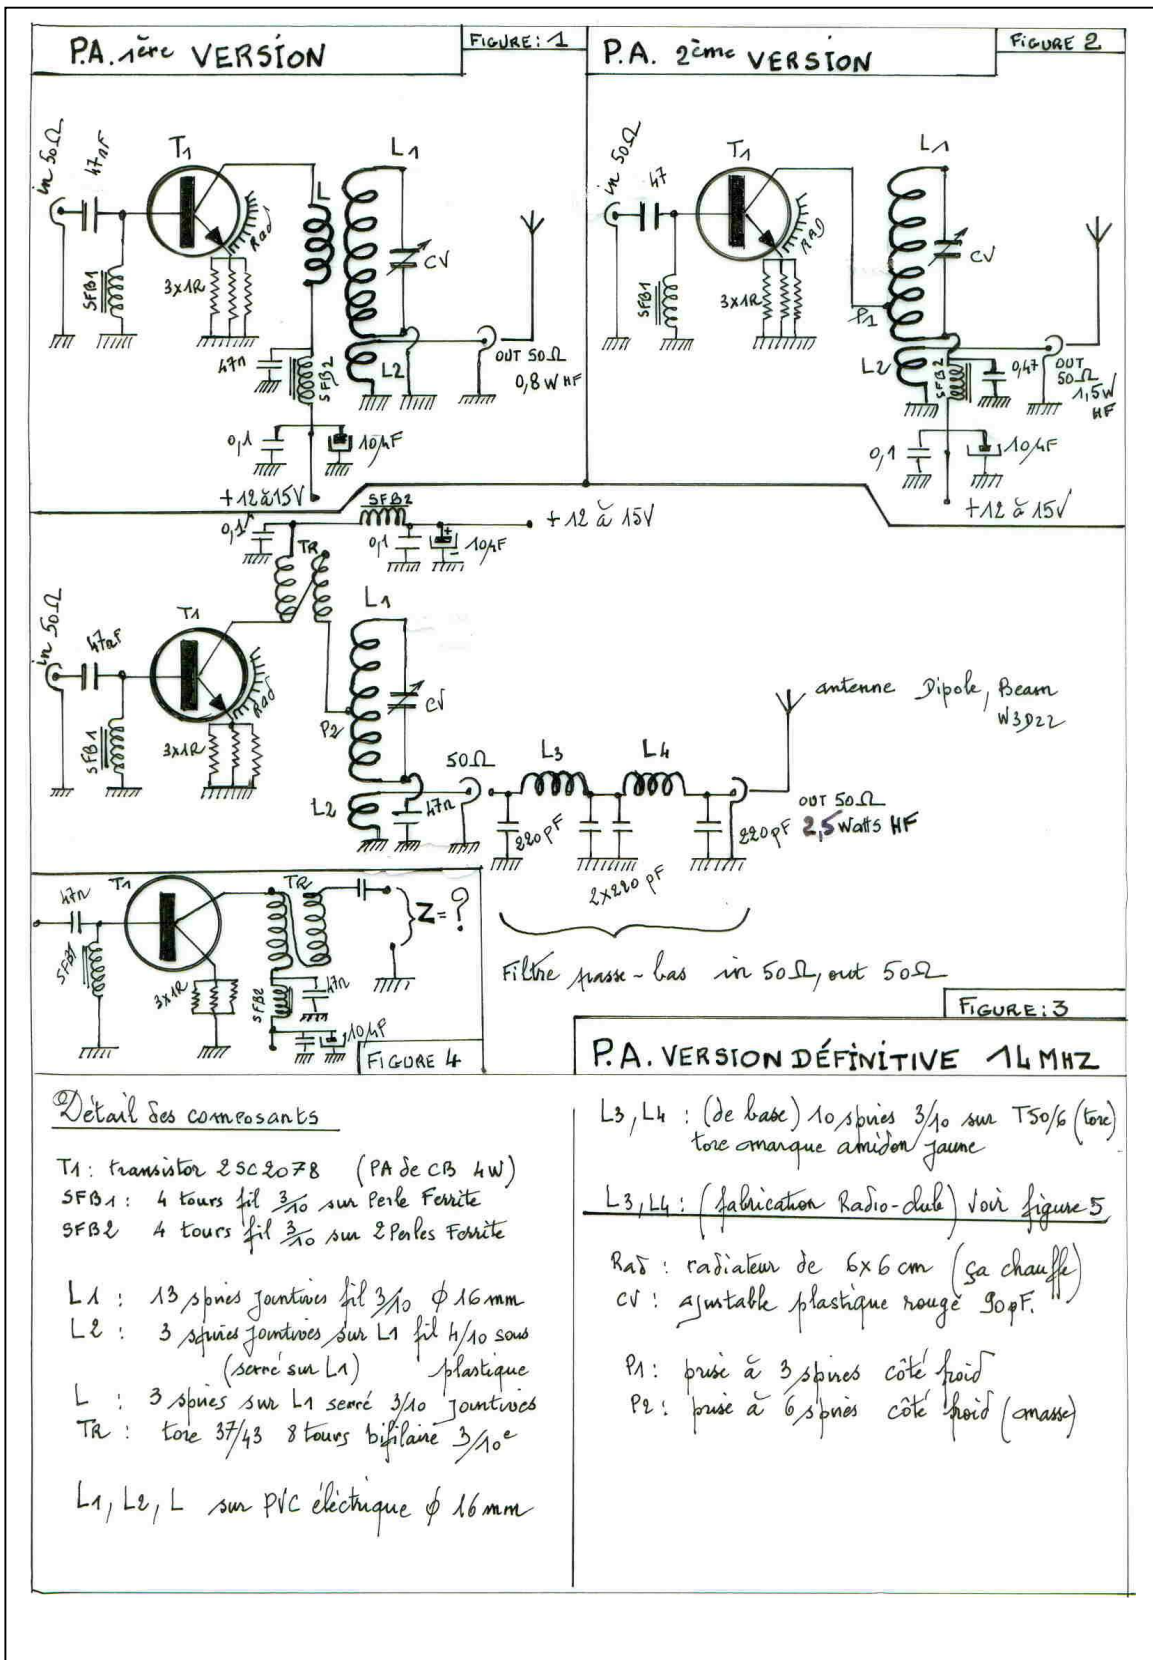 P.A. 1ère VERSION
FIGURE: 1
in 50Ω
47nF
T1
Rad
SFB1
3x1R
L
L1
CV
47n
SFB2
L2
OUT 50Ω
0,8W HF
0,1
10µF
+12 à 15V
P.A. 2ème VERSION
FIGURE 2
in 50Ω
47
T1
RAD
SFB1
3x1R
L1
CV
P1
L2
SFB2
0,47
OUT
50Ω
1,5W
HF
0,1
10µF
+12 à 15V
0,1µ
SFB2
0,1
10µF
+12 à 15V
TR
in 50Ω
47nF
T1
Rad
SFB1
3x1R
L1
CV
P2
L2
47n
50Ω
L3
L4
220pF
2x220pF
220pF
antenne Dipole, Beam
W3D22
OUT 50Ω
2,5 Watts HF
Filtre passe-bas in 50Ω, out 50Ω
FIGURE: 3
47n
T1
SFB1
3x1R
TR
Z=?
SFB2
47n
10µF
FIGURE 4
P.A. VERSION DÉFINITIVE 14 MHZ
Détail des composants
T1: transistor 2SC2078 (PA de CB 4W)
SFB1: 4 tours fil 3/10 sur Perle Ferrite
SFB2 4 tours fil 3/10 sur 2 Perles Ferrite
L1 : 13 spires jointives fil 3/10 ϕ 16mm
L2 : 3 spires jointives sur L1 fil 4/10 sous
(serré sur L1) plastique
L : 3 spires sur L1 serré 3/10 jointives
TR : tore 37/43 8 tours bifilaire 3/10e
L1, L2, L sur PVC éléctrique ϕ 16mm
L3, L4 : (de base) 10 spires 3/10 sur T50/6 (tore)
tore marque amidon jaune
L3, L4 : (fabrication Radio-club) voir figure 5
Rad : radiateur de 6x6 cm (ça chauffe)
CV : ajustable plastique rouge 90pF.
P1 : prise à 3 spires côté froid
P2 : prise à 6 spires côté froid (masse)